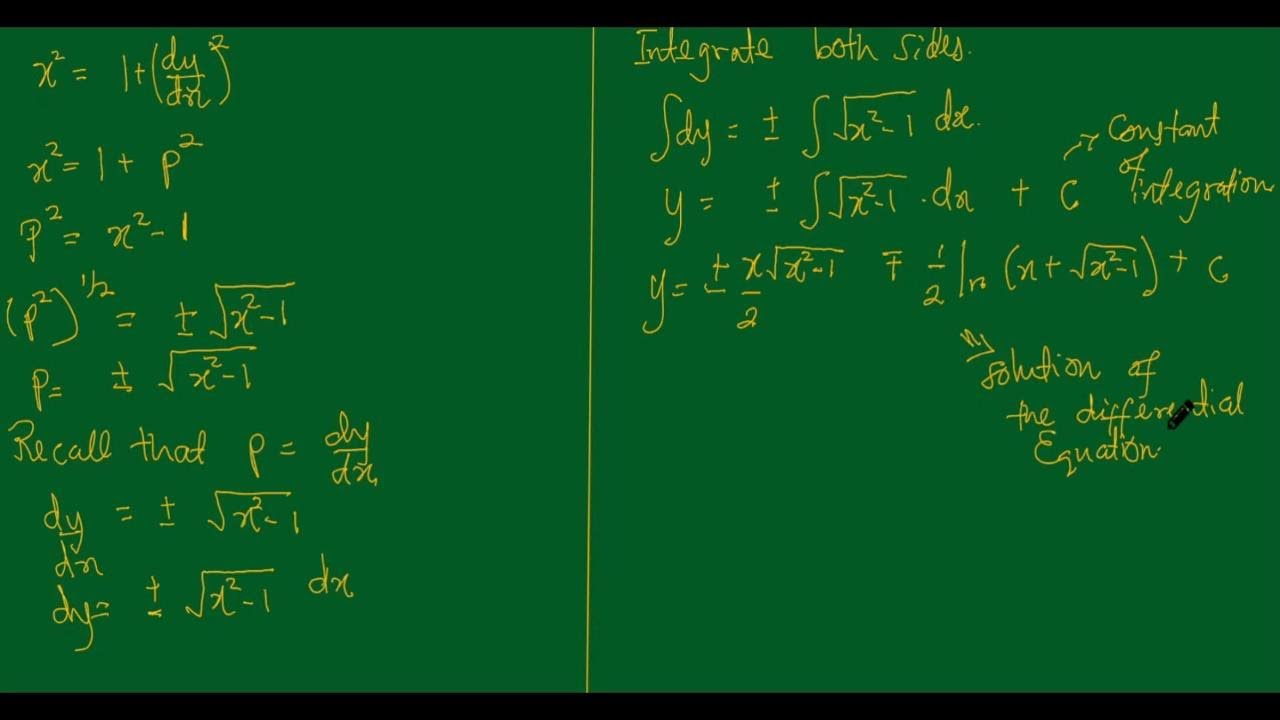 x² = 1+(dy/dx)²
x² = 1 + p²
p² = x² - 1
(p²)^1/2 = ± √x²-1
p = ± √x²-1
Recall that p = dy/dx
dy/dx = ± √x²-1
dy = ± √x²-1 dx
Integrate both sides.
∫dy = ± ∫√x²-1 dx.
y = ± ∫√x²-1 . dx + C → Constant of integration
y = ± x√x²-1/2 ∓ 1/2 ln (x + √x²-1) + C
Solution of
the differential
Equation.